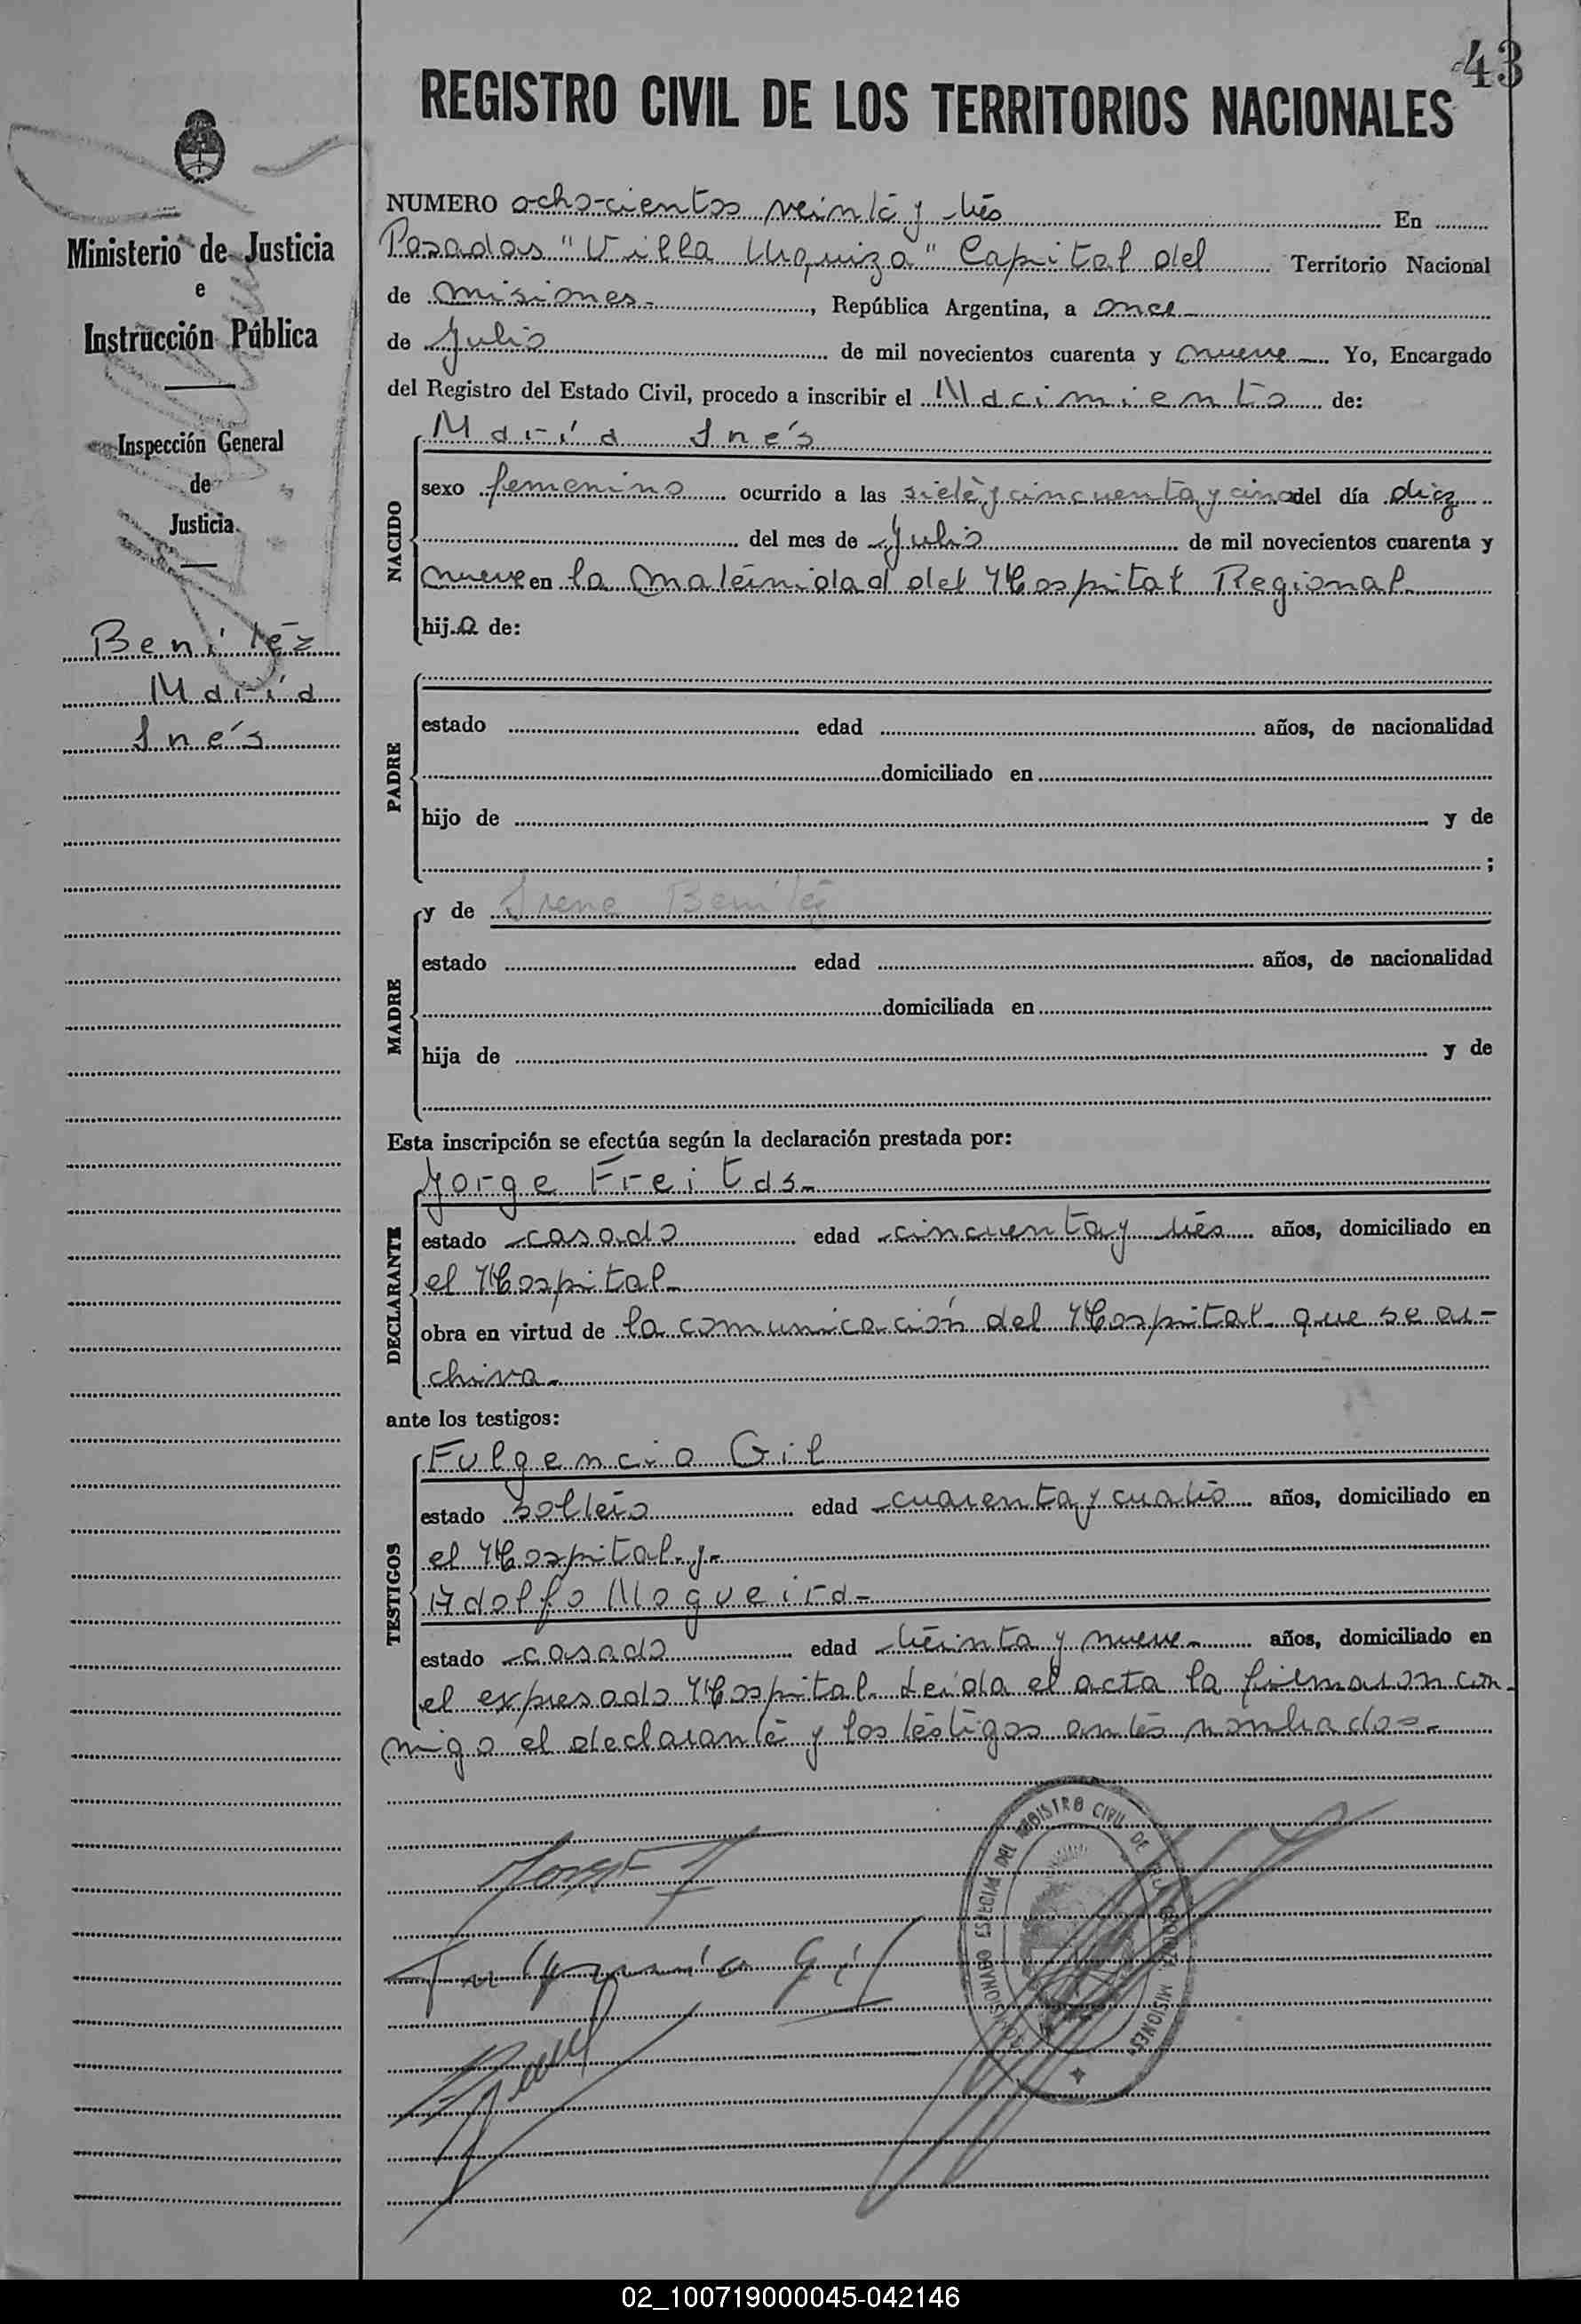 43
REGISTRO CIVIL DE LOS TERRITORIOS NACIONALES
Ministerio de Justicia
e
Instrucción Pública
Inspección General
de
Justicia
Benitez
María
Inés
NUMERO ochocientos veinte y tres En
Posadas "Villa Urquiza" Capital del Territorio Nacional
de misiones.-, República Argentina, a once-
de Julio de mil novecientos cuarenta y nueve-. Yo, Encargado
del Registro del Estado Civil, procedo a inscribir el Nacimiento de:
María Inés
NACIDO
sexo femenino ocurrido a las siete y cincuenta y cinco del día diez
del mes de Julio de mil novecientos cuarenta y
nueve en la maternidad del Hospital Regional.
hija de:
PADRE
estado edad años, de nacionalidad
domiciliado en
hijo de y de
;
MADRE
y de Irene Benitez
estado edad años, de nacionalidad
domiciliada en
hija de y de
Esta inscripción se efectúa según la declaración prestada por:
DECLARANTE
Jorge Freitas-
estado casado edad cincuenta y tres años, domiciliado en
el Hospital-
obra en virtud de la comunicación del Hospital que se ar-
chiva-
ante los testigos:
TESTIGOS
Fulgencio Gil
estado soltero edad cuarenta y cuatro años, domiciliado en
el Hospital. y-
Adolfo Nogueira-
estado casado edad treinta y nueve- años, domiciliado en
el expresado Hospital. Leída el acta la firmaron con-
migo el declarante y los testigos antes nombrados-
Jorge F
Fulgencio Gil
COMISIONADO ESPECIAL DEL REGISTRO CIVIL DE MISIONES
02_100719000045-042146